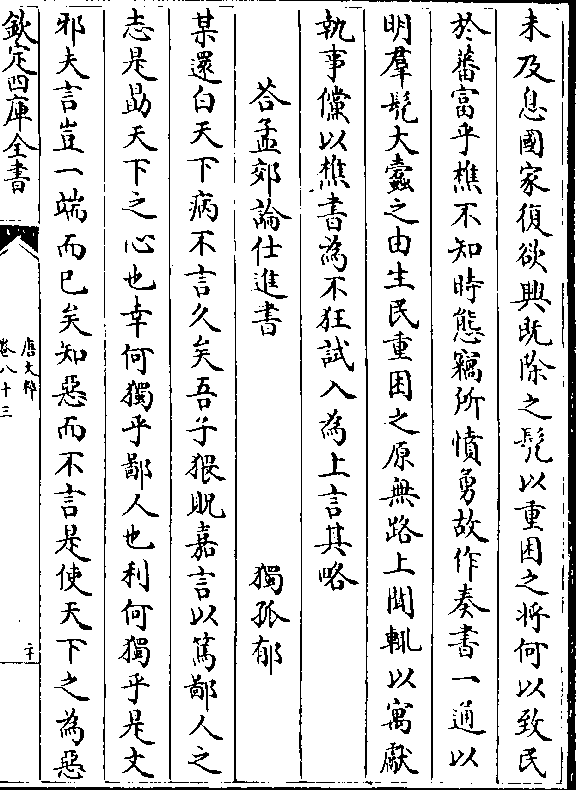 未及息國家復欲興既除之髠以重困之將何以致民
於蕃富乎樵不知時態竊所憤勇故作奏書一通以
明羣髠大蠹之由生民重困之原無路上聞輒以寓獻
執事儻以樵書為不狂試入為上言其略
荅孟郊論仕進書 獨孤郁
某還白天下病不言久矣吾子猥貺嘉言以篤鄙人之
志是勗天下之心也幸何獨乎鄙人也利何獨乎是文
邪夫言豈一端而已矣知惡而不言是使天下之為惡
欽定四庫全書
唐文粹
卷八十三